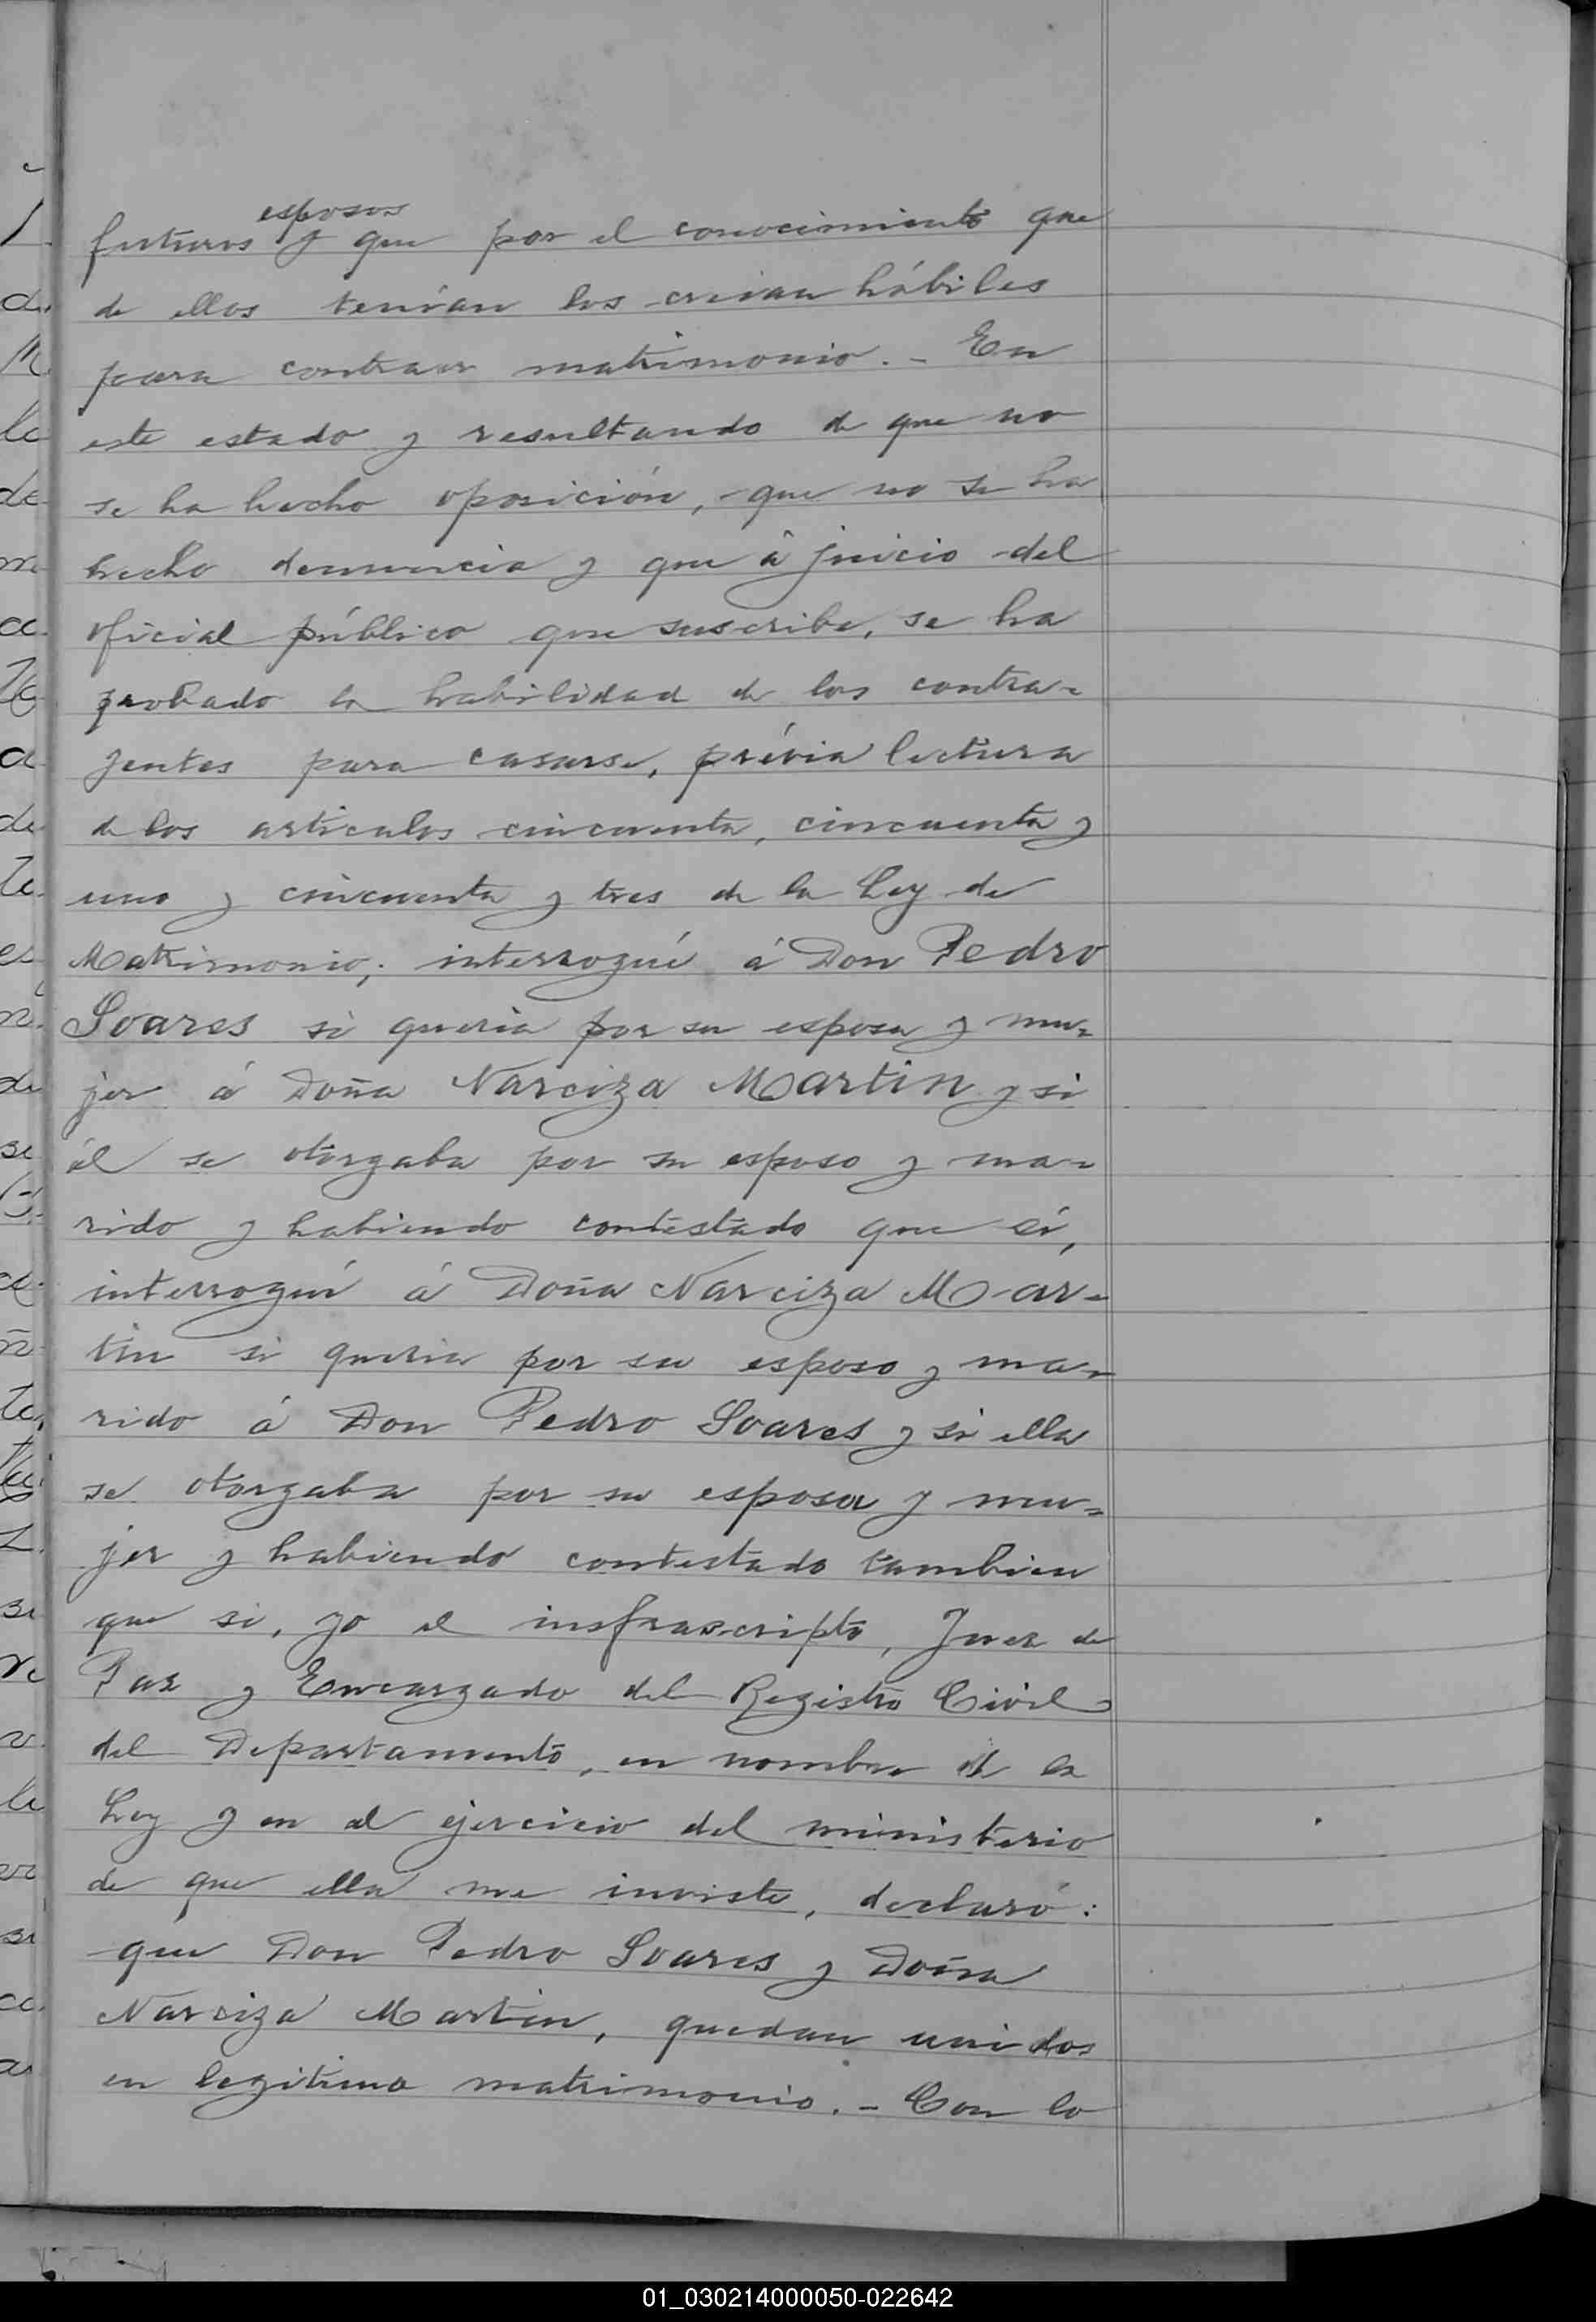 esposos
futuros y que por el conocimiento que
de ellos tenían los creían hábiles
para contraer matrimonio. - En
este estado y resultando de que no
se ha hecho oposición, que no se ha
hecho denuncia y que á juicio del
oficial público que suscribe, se ha
probado la habilidad de los contra-
yentes para casarse, prévia lectura
de los articulos cincuenta, cincuenta y
uno y cincuenta y tres de la Ley de
Matrimonio; interrogué á Don Pedro
Soares si queria por su esposa y mu-
jer á Doña Narciza Martin y si
él se otorgaba por su esposo y ma-
rido y habiendo contestado que sí,
interrogué á Doña Narciza Mar-
tin si queria por su esposo y ma-
rido á Don Pedro Soares y si ella
se otorgaba por su esposa y mu-
jer y habiendo contestado tambien
que si, yo el insfrascripto, Juez de
Paz y Encargado del Registro Civil
del Departamento, en nombre de la
Ley y en el ejercicio del ministerio
de que ella me inviste, declaró:
que Don Pedro Soares y Doña
Narciza Martin, quedan unidos
en legitimo matrimonio. - Con lo
01_030214000050-022642